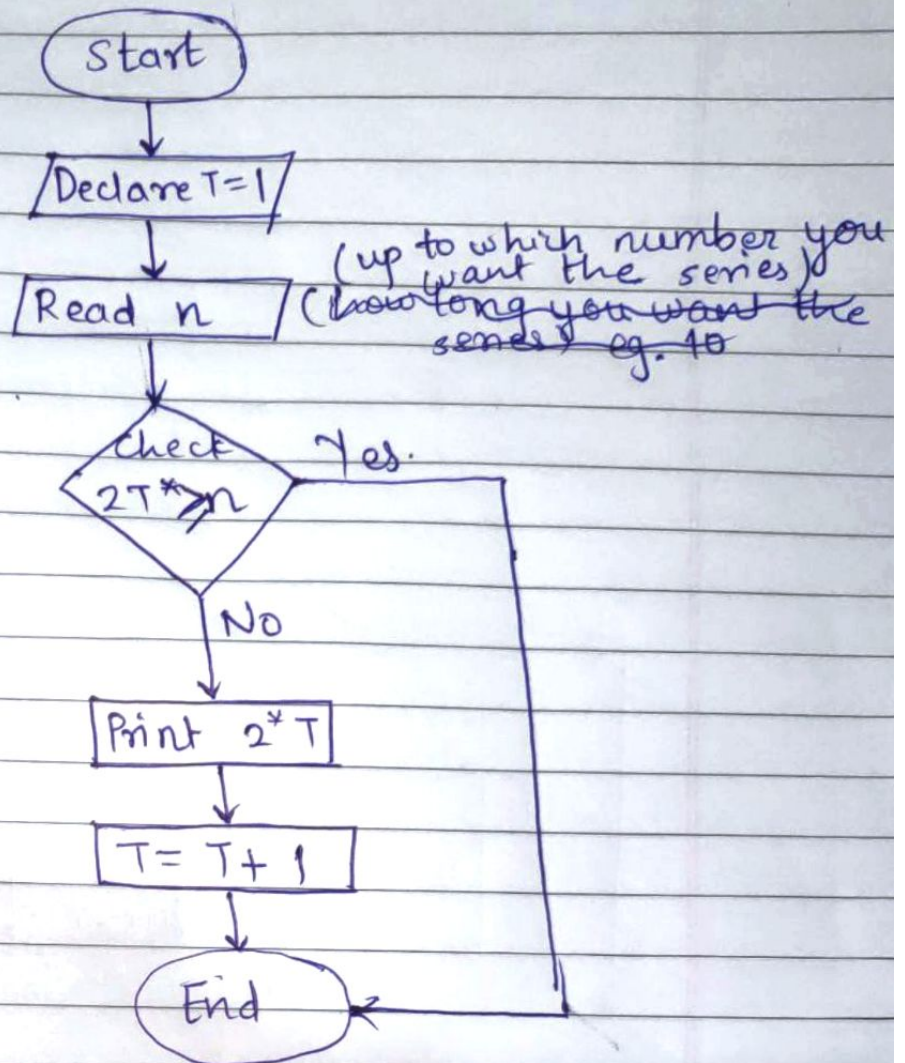 Start
Declare T=1
(up to which number you
want the series)
Read n
(how long you want the
series) eg. 10
Check
Yes.
2T*⩾n
No
Print 2*T
T= T+1
End